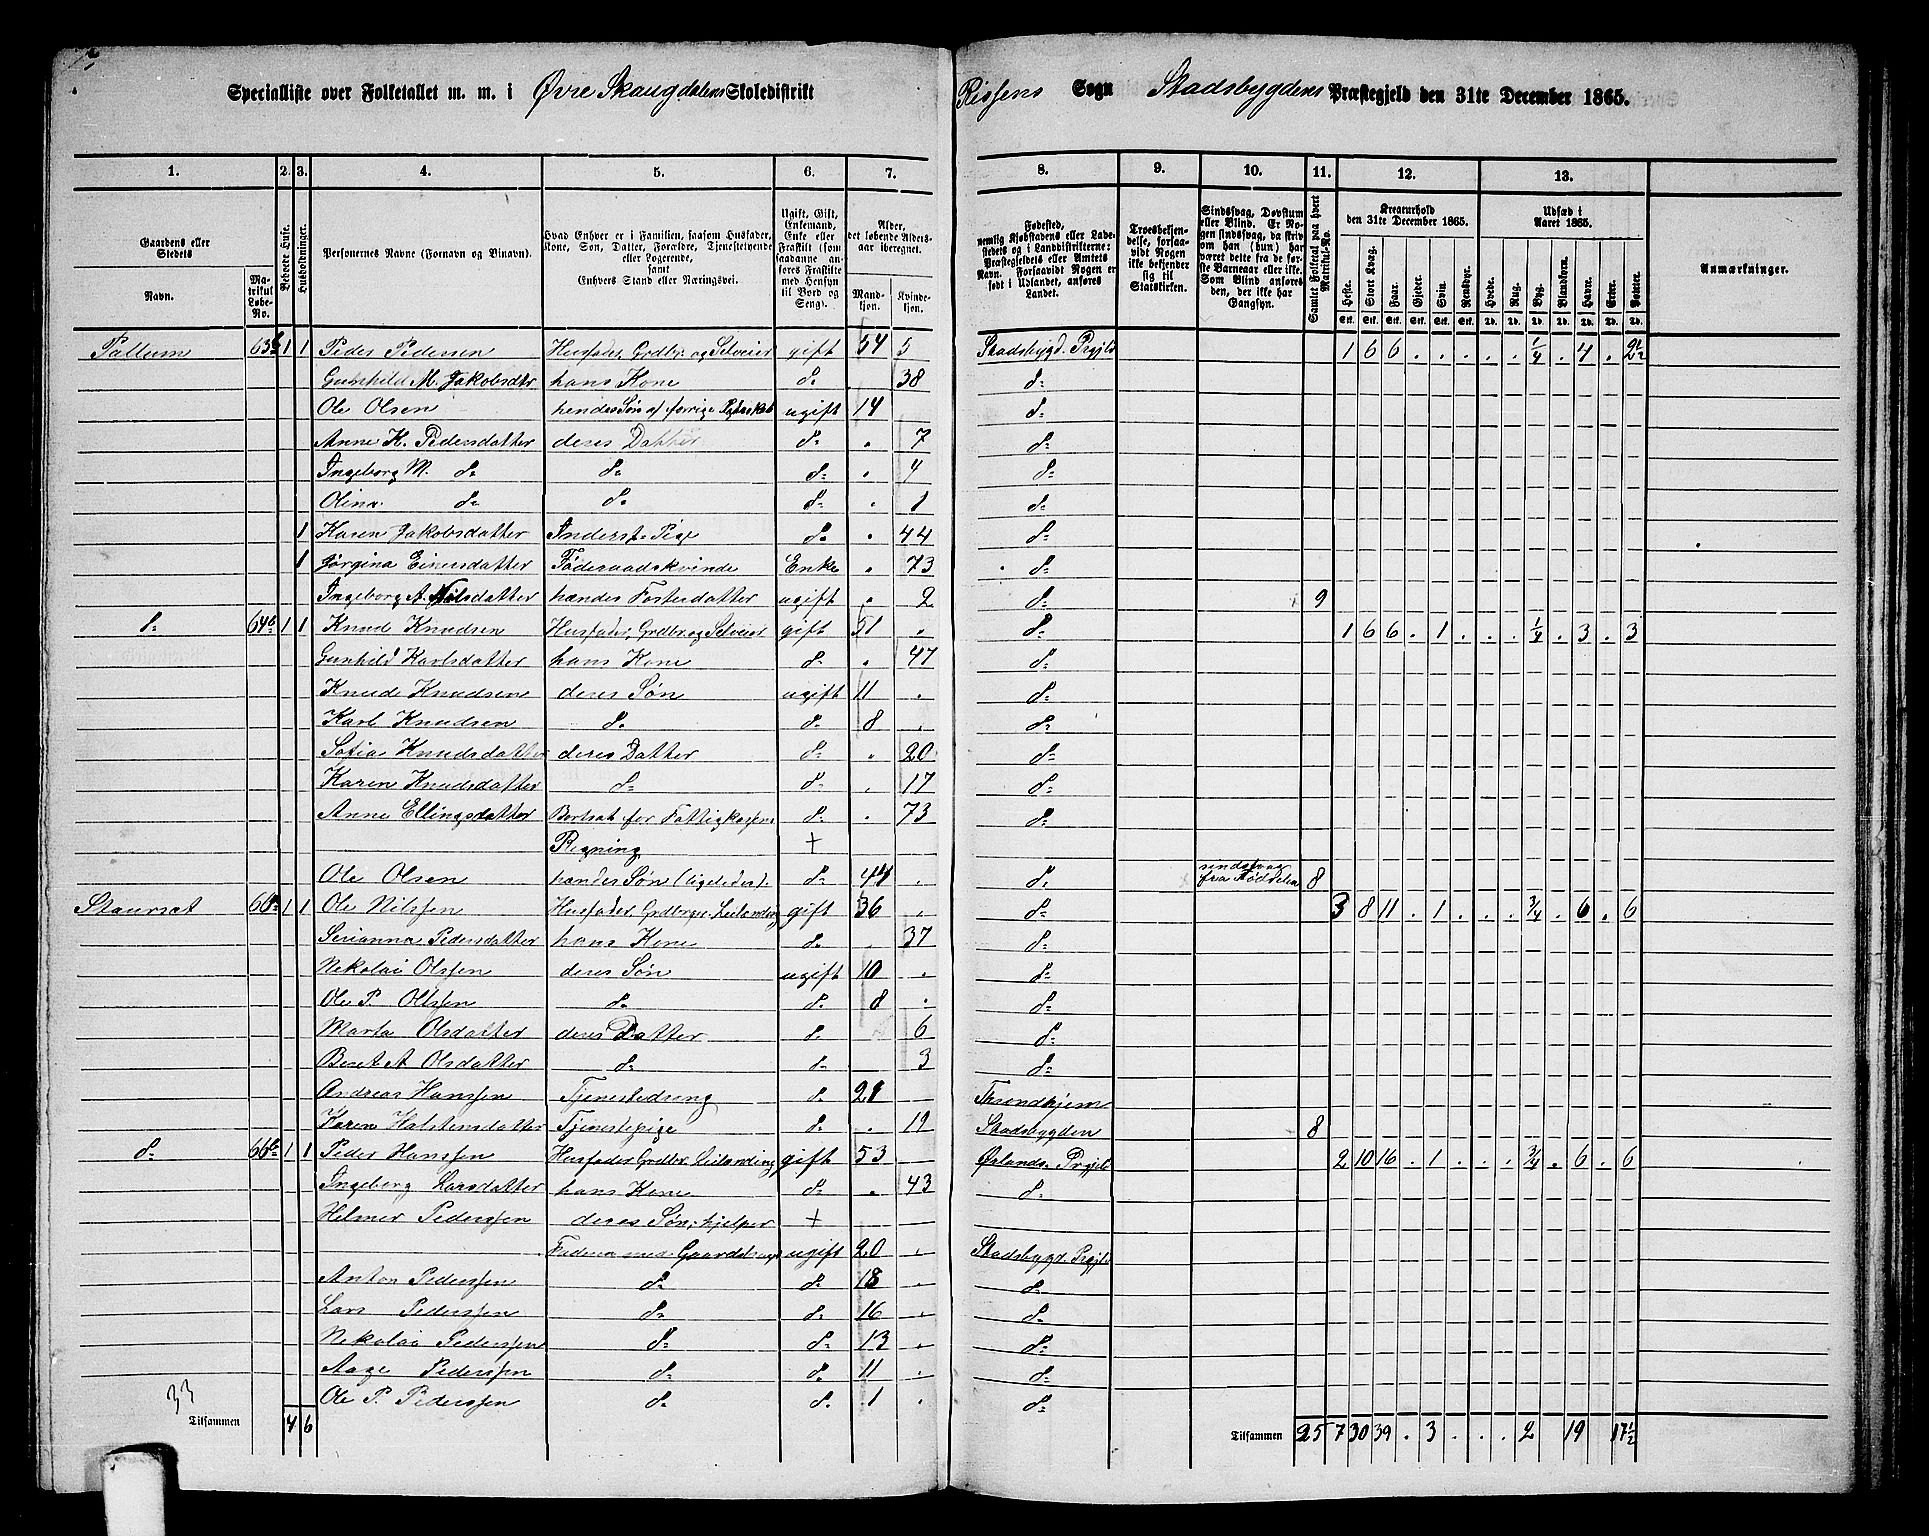 Specialliste over Folketallet m. m. i Øvre Skaugdalens Skoledistrikt Rissens Sogn Stadsbygdens Præstegjeld den 31te December 1865.
1. 2. 3. 4. 5. 6. 7. 8. 9. 10. 11. 12. 13.
Gaardens eller Stedets Navn. Matrikul Løbe-No. Beboede Huse. Husholdninger. Personernes Navne (Fornavn og Tilnavn). Hvad Enhver er i Familien, saasom Husfader, Kone, Søn, Datter, Forældre, Tjenestetyende eller Logerende, samt Enhvers Stand eller Næringsvei. Ugift, Gift, Enkemand, Enke eller Fraskilt (som saadanne anføres Fraskilte med Hensyn til Bord og Seng). Alder, det løbende Aldersaar iberegnet. Mandkjøn. Kvindekjøn.
Fødested, nemlig Kjøbstadens eller Ladestedets og i Landdistrikterne: Præstegjeldets eller Amtets Navn. Forsaavidt Nogen er født i Udlandet, anføres Landet. Troesbekjendelse, forsaavidt Nogen ikke bekjender sig til Statskirken. Sindssvag, Døvstum eller Blind. Er Nogen sindssvag, da skriv om han (hun) har været dette fra de første Barneaar eller ikke. Som Blind anføres den, der ikke har Gangsyn. Samlet Folketal paa hvert Matrikul-No. Kreaturhold den 31te December 1865. Heste. Stort Kvæg. Faar. Gjeder. Svin. Rensdyr. Udsæd i Aaret 1865. Hvede. Rug. Byg. Blandkorn. Havre. Erter. Poteter. Anmærkninger.
Stk. Stk. Stk. Stk. Stk. Stk. Td. Td. Td. Td. Td. Td. Td.
Pallum 63 1 1 Peder Pedersen Husfader, Grdbr. og Selveier gift 54 5 Stadsbygd. Prgjld 1 6 6 . . . . . 1/4 . 4 . 2 1/2
Gunhild M. Jakobsdtr hans Kone d= 38 d=
Ole Olsen hendes Søn af forrige ugift 14 d=
Anne K. Pedersdatter deres Datter d= . 7 d=
Ingeborg M. d= d= d= . 4 d=
Olina d= d= d= . 1 d=
1 Karen Jakobsdatter Inderst, Pige d= . 44 d=
1 Jørgina Einersdatter Føderaadskvinde Enke . 73 d=
Ingeborg A. Nilsdatter hendes Fosterdatter ugift . 2 d= 9
d= 64b 1 1 Knud Knudsen Husfader, Grdbr. og Selveier gift 51 . d= 1 6 6 . 1 . . . 1/4 . 3 . 3
Gunhild Karlsdatter hans Kone d= . 47 d=
Knud Knudsen deres Søn ugift 11 . d=
Karl Knudsen d= d= 8 . d=
Sofia Knudsdatter deres Datter d= . 20 d=
Karen Knudsdatter d= d= . 17 d=
Anne Ellingsdatter Bortsat for Fattigkassens d= . 73 d=
Regning +
Ole Olsen hendes Søn (ligeledes). d= 44 . d= sindssvag fra Fødselen 8
Staursæt 66a 1 1 Ole Nilssen Husfader, Grdbrger Leilænding gift 36 . d= 3 8 11 . 1 . . . 3/4 . 6 . 6
Serianna Pedersdatter hans Kone d= . 37 d=
Nikolai Olssen deres Søn ugift 10 . d=
Ole P. Olssen d= d= 8 . d=
Marta Olsdatter deres Datter d= 6 d=
Beret A Olsdatter d= d= 3 d=
Andreas Hanssen Tjenestedreng d= 21 Throndhjem
Karen Halstensdatter Tjenestepige d= . 19 Stadsbygden 8
d= 66b 1 1 Peder Hanssen Husfader Grdbr. Leilænding gift 53 Ørlands. Prgjld 2 10 16 . 1 . . . 3/4 . 6 . 6
Ingeborg Larsdatter hans Kone d= . 43 d=
Helmer Pederssen deres Søn, hjelper +
Faderen med Gaardsbruget ugift 20 . Stadsbygd. Prgjld
Anton Pederssen d= d= 18 . d=
Lars Pederssen d= d= 16 . d=
Nikolai Pederssen d= d= 13 . d=
Aage Pederssen d= d= 11 . d=
Ole P. Pederssen d= d= 1 . d=
33
Tilsammen 4 6 Tilsammen 25 7 30 39 . 3 . . . 2 19 17 1/2